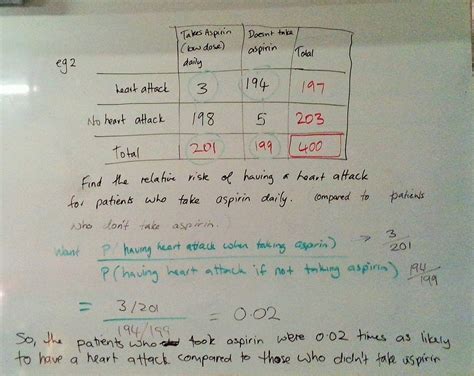 eg2
Takes Aspirin (low dose) daily | Doesnt take aspirin | Total
heart attack | 3 | 194 | 197
No heart attack | 198 | 5 | 203
Total | 201 | 199 | 400
Find the relative risk of having a heart attack
for patients who take aspirin daily. compared to patients
who don't take aspirin.
Want P(having heart attack when taking aspirin) → 3/201
P(having heart attack if not taking aspirin) 194/199
= 3/201 = 0.02
194/199
So, the patients who took aspirin were 0.02 times as likely
to have a heart attack compared to those who didn't take aspirin